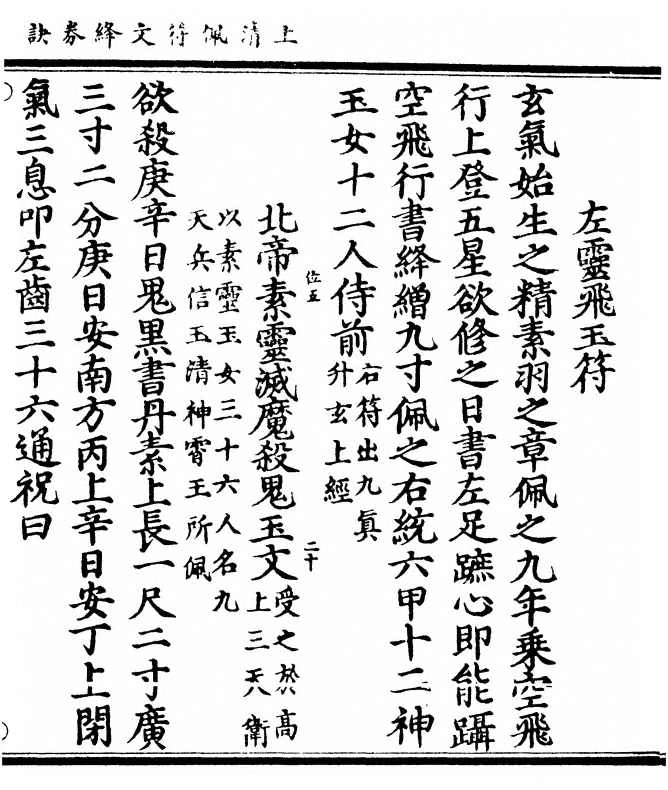 上清佩符文絳券訣
左靈飛玉符
玄氣始生之精素羽之章佩之九年乗空飛
行上登五星欲修之日書左足蹠心即能躡
空飛行書絳繒九寸佩之右統六甲十二神
玉女十二人侍前右符出九真
升玄上經
位五
二十
北帝素靈滅魔殺鬼玉文受之於高
上三天衛
以素靈玉女三十六人名九
天兵信玉清神霄王所佩
欲殺庚辛日鬼黒書丹素上長一尺二寸廣
三寸二分庚日安南方丙上辛日安丁上閉
氣三息叩左齒三十六通祝曰